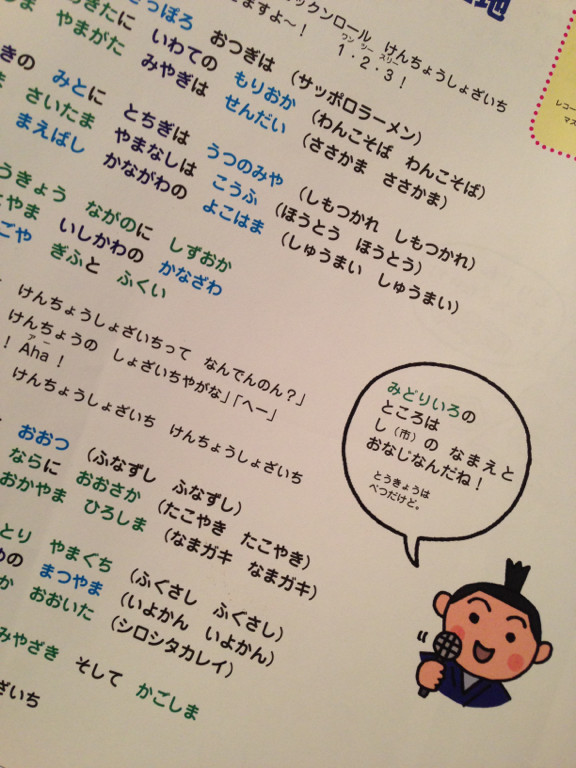 地
ックンロール けんちょうしょざいち
ますよ～！ 1・2・3！
ワン ツー スリー
さっぽろ おつぎは (サッポロラーメン)
きたに いわての もりおか (わんこそば わんこそば)
やまがた みやぎは せんだい (ささかま ささかま)
きの みとに とちぎは うつのみや (しもつかれ しもつかれ)
さいたま やまなしは こうふ (ほうとう ほうとう)
まえばし かながわの よこはま (しゅうまい しゅうまい)
うきょう ながのに しずおか
やま いしかわの かなざわ
ごや ぎふと ふくい
けんちょうしょざいちって なんでんのん？」
けんちょうの しょざいちやがな」「へー」
！ Aha！
アー
けんちょうしょざいち けんちょうしょざいち
おおつ (ふなずし ふなずし)
ならに おおさか (たこやき たこやき)
おかやま ひろしま (なまガキ なまガキ)
とり やまぐち (ふぐさし ふぐさし)
の まつやま (いよかん いよかん)
か おおいた (シロシタカレイ)
みやざき そして かごしま
ざいち
みどりいろの
ところは
し(市)の なまえと
おなじなんだね！
とうきょうは
べつだけど。
レコー
マス